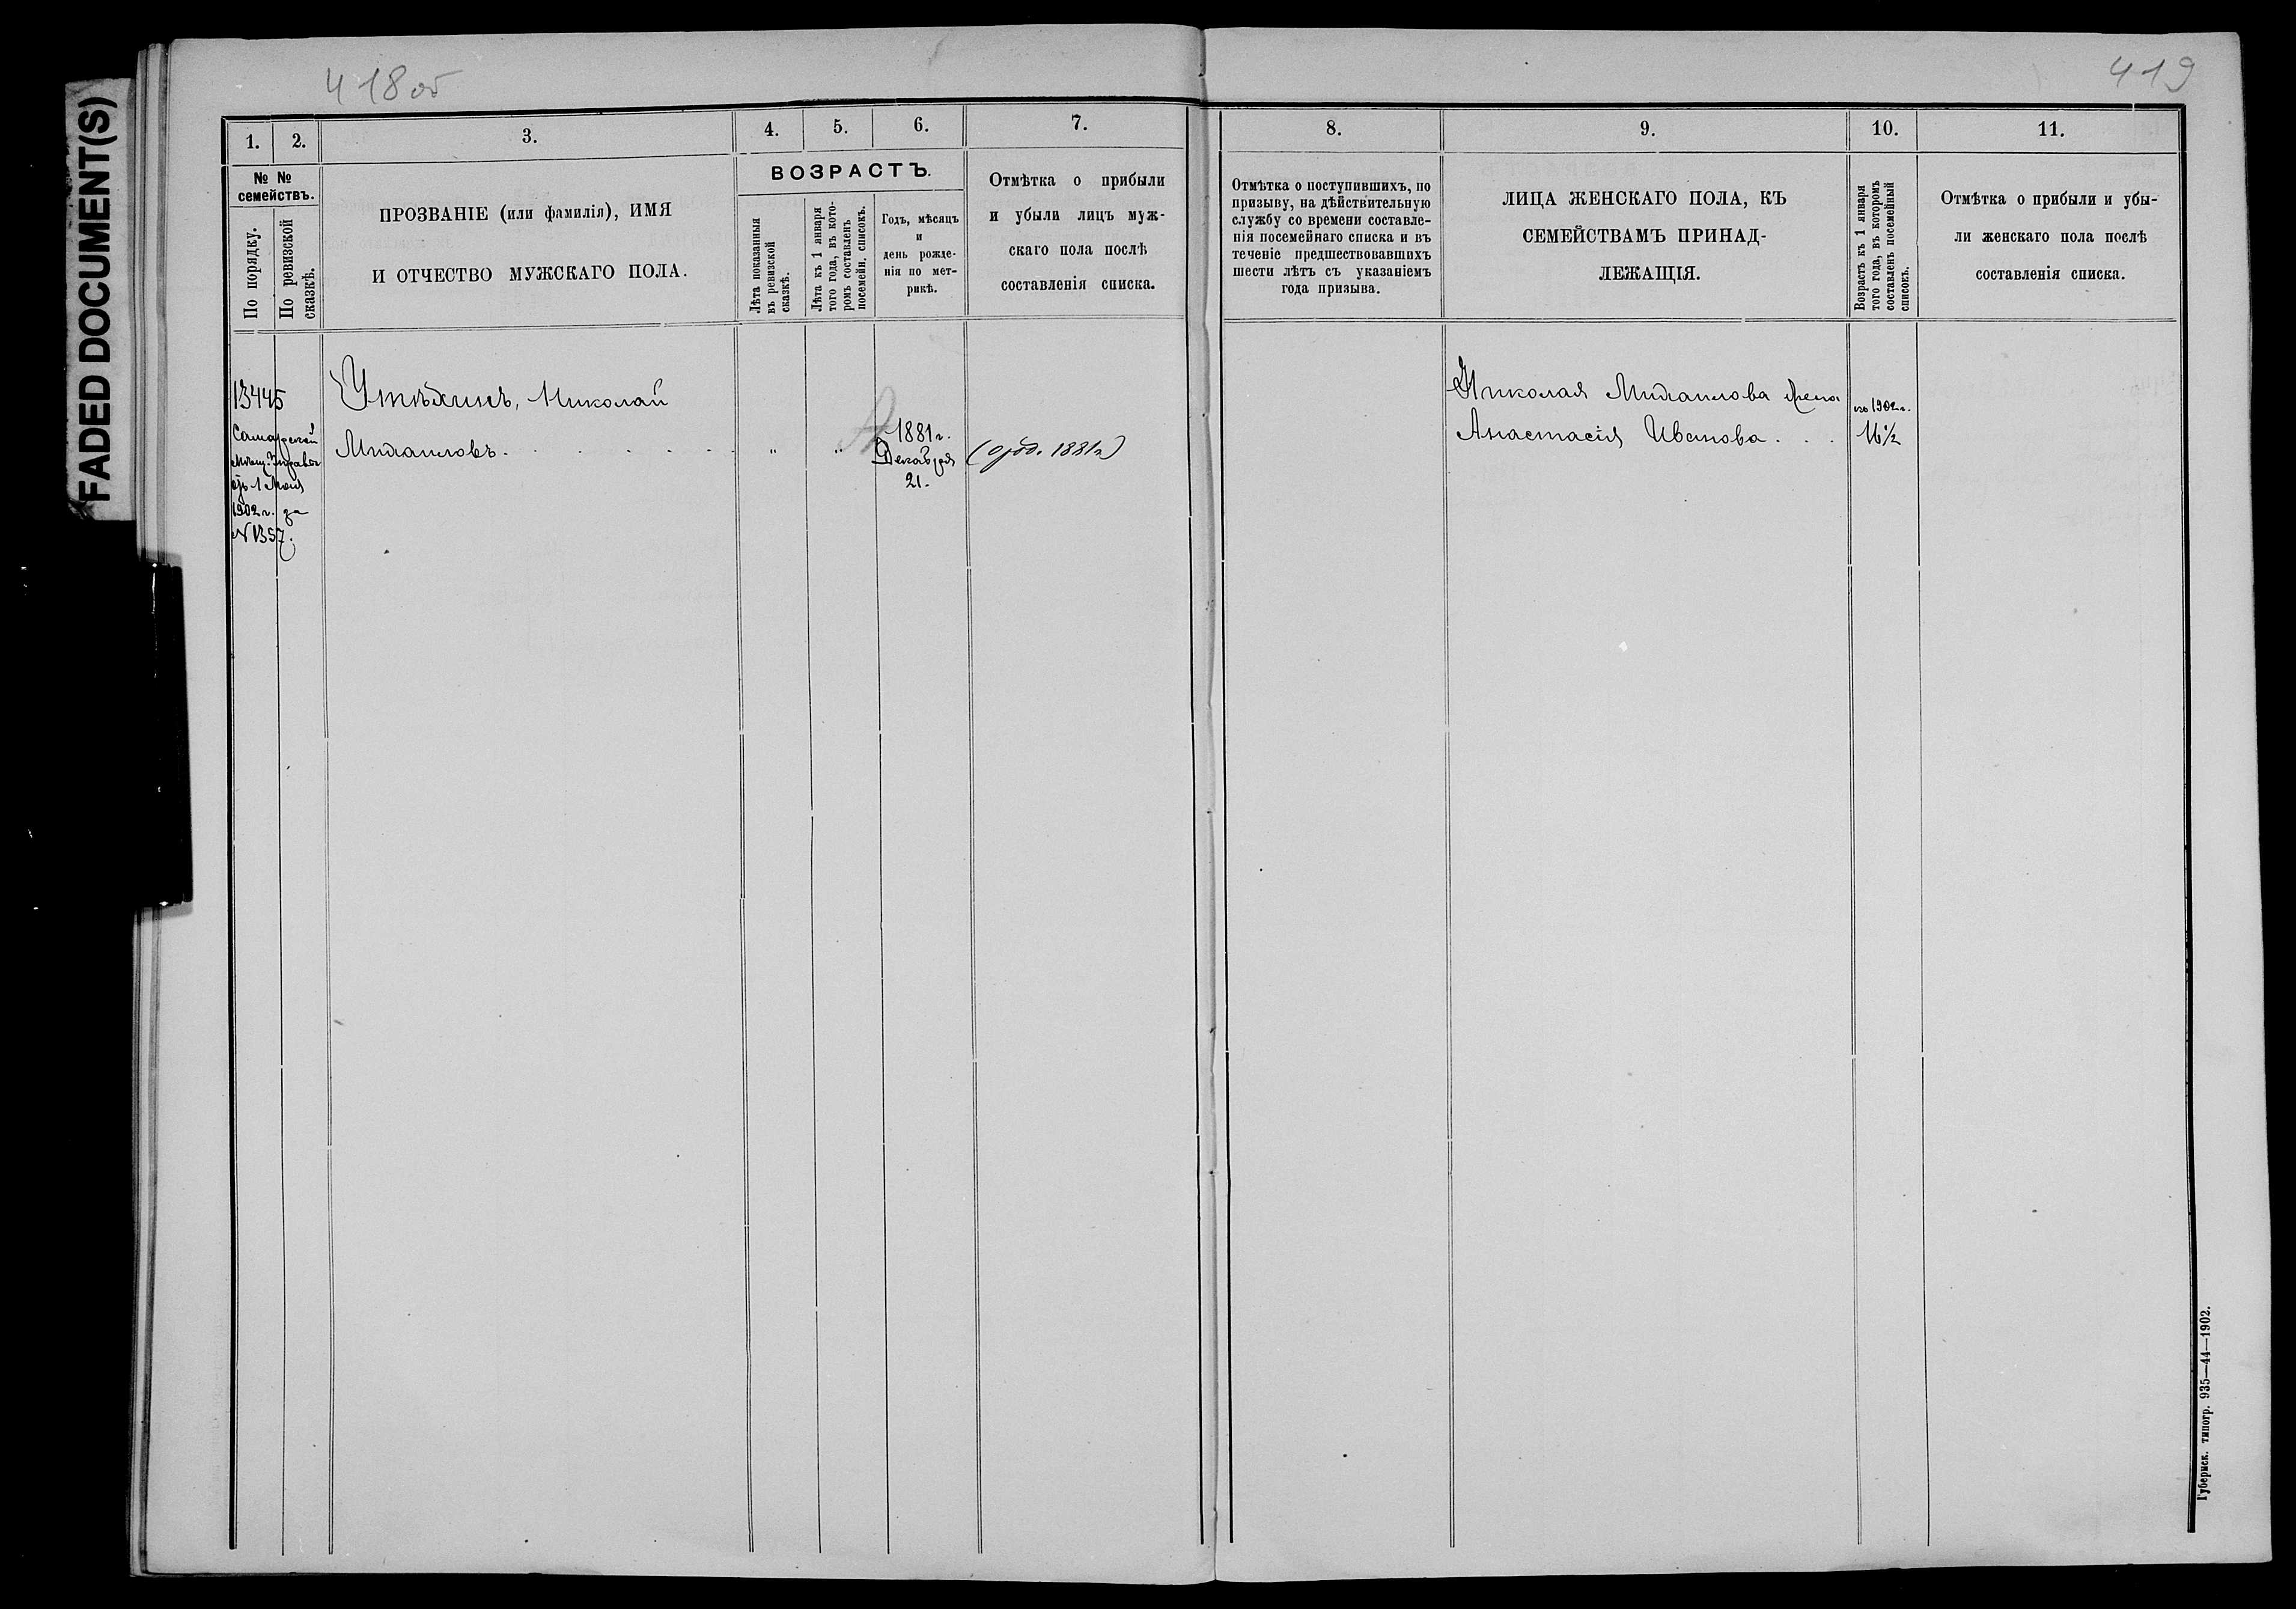 FADED DOCUMENT(S)
418об
419
1.
2.
3.
4.
5.
6.
7.
8.
9.
10.
11.
№ №
семействъ.
По порядку.
По ревизской
сказкѣ.
ПРОЗВАНІЕ (или фамилія), ИМЯ
И ОТЧЕСТВО МУЖСКАГО ПОЛА.
ВОЗРАСТЪ.
Лѣта показанныя
въ ревизской
сказкѣ.
Лѣта къ 1 января
того года, въ кото-
ромъ составленъ
посемейн. списокъ.
Годъ, мѣсяцъ
и
день рожде-
нія по мет-
рикѣ.
Отмѣтка о прибыли
и убыли лицъ муж-
скаго пола послѣ
составленія списка.
Отмѣтка о поступившихъ, по
призыву, на дѣйствительную
службу со времени составле-
нія посемейнаго списка и въ
теченіе предшествовавшихъ
шести лѣтъ съ указаніемъ
года призыва.
ЛИЦА ЖЕНСКАГО ПОЛА, КЪ
СЕМЕЙСТВАМЪ ПРИНАД-
ЛЕЖАЩІЯ.
Возрастъ къ 1 января
того года, въ которомъ
составленъ посемейный
списокъ.
Отмѣтка о прибыли и убы-
ли женскаго пола послѣ
составленія списка.
13445
Самарской
1902 г. за
№ 1357.
Утѣхинъ, Николай
Михаиловъ . . . . . . .
"
"
1881 г.
Декабря
21.
1881 г)
Николая Михаилова жена
Анастасія Иванова . . .
въ 1902 г.
16½
Губернск. типогр. 935—44—1902.